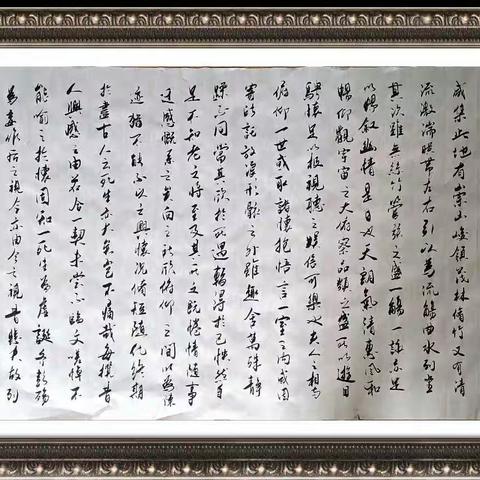 咸集此地有崇山峻領茂林脩竹又有清
流激湍暎帶左右引以為流觴曲水列坐
其次雖無絲竹管弦之盛一觴一詠亦足
以暢敘幽情是日也天朗氣清惠風和
暢仰觀宇宙之大俯察品類之盛所以遊目
騁懷足以極視聽之娛信可樂也夫人之相與
俯仰一世或取諸懷抱悟言一室之內或因
寄所託放浪形骸之外雖趣舍萬殊靜
躁不同當其欣於所遇輒得於己怏然自
足不知老之將至及其所之既惓情隨事
遷感慨係之矣向之所欣俯仰之間以為陳
迹猶不能不以之興懷況脩短隨化終期
於盡古人云死生亦大矣豈不痛哉每攬昔
人興感之由若合一契未嘗不臨文嗟悼不
能喻之於懷固知一死生為虛誕齊彭殤
為妄作後之視今亦由今之視昔悲夫故列